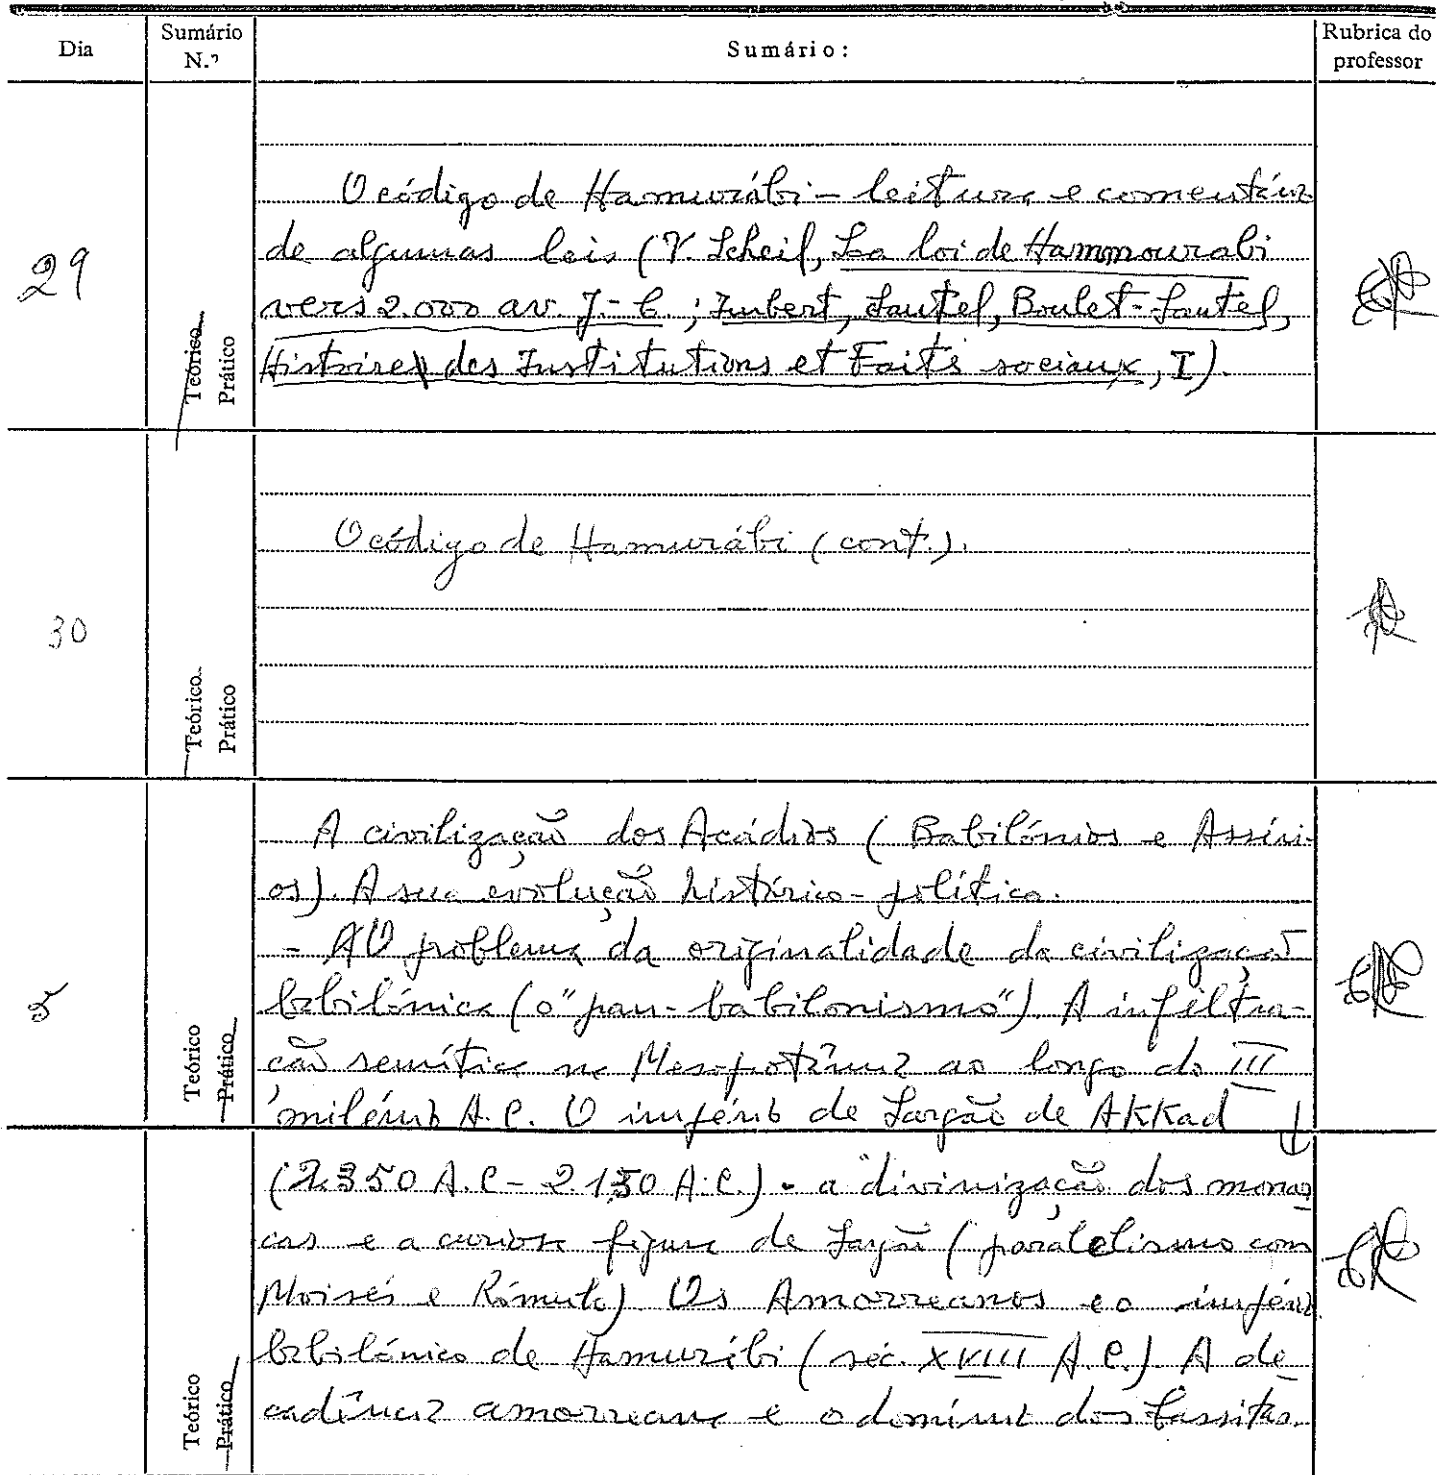 Dia Sumário N.º Sumário: Rubrica do professor
29
Teórico
Prático
O código de Hamurábi – leitura e comentário
de algumas leis (V. Scheil, La loi de Hammourabi
vers 2.000 av. J.-C.; Imbert, Sautel, Boulet-Sautel,
Histoire des Institutions et Faits sociaux, I).
30
Teórico
Prático
O código de Hamurábi (cont.).
5
Teórico
Prático
A civilização dos Acádios (Babilónios e Assíri-
os). A sua evolução histórico-política.
- O problema da originalidade da civilização
babilónica (o "pan-babilonismo"). A infiltra-
ção semítica na Mesopotâmia ao longo do III
milénio A.C. O império de Sargão de Akkad
Teórico
Prático
(2.350 A.C - 2.150 A.C.) - a divinização dos monar
cas e a curiosa figura de Sargão (paralelismo com
Moisés e Rómulo) Os Amorreanos e o império
babilónico de Hamurábi (séc. XVIII A.C.). A de
cadência amorreana e o domínio dos Cassitas.